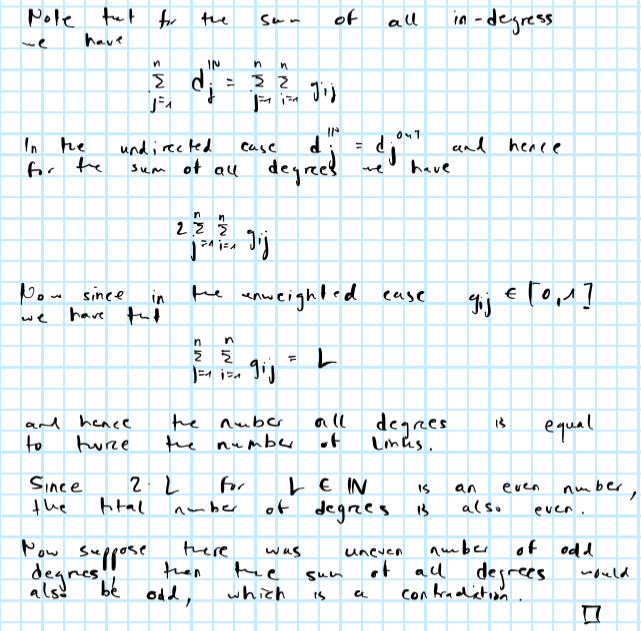 Note that for the sum of all in-degress
we have
n Σ j=1 d_j^IN = n Σ j=1 n Σ i=1 g_ij
In the undirected case d_j^IN = d_j^out and hence
for the sum of all degrees we have
2 n Σ j=1 n Σ i=1 g_ij
Now since in the unweighted case g_ij ∈ [0,1]
we have that
n Σ j=1 n Σ i=1 g_ij = L
and hence the number all degrees is equal
to twice the number of Links.
Since 2·L for L ∈ IN is an even number,
the total number of degrees is also even.
Now suppose there was uneven number of odd
degrees then the sum of all degrees would
also be odd, which is a contradiction.
□